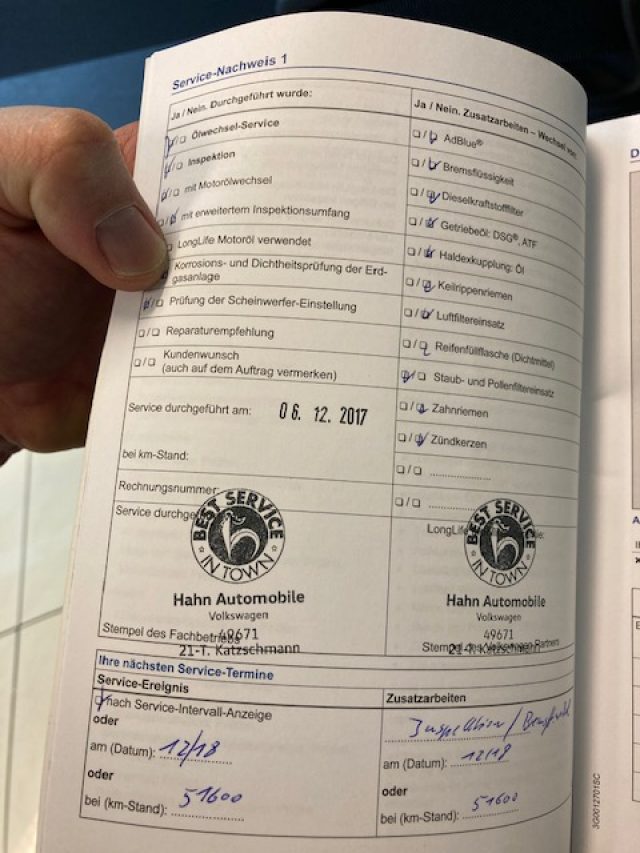 Service-Nachweis 1
Ja / Nein. Durchgeführt wurde:
Ölwechsel-Service
Inspektion
mit Motorölwechsel
mit erweitertem Inspektionsumfang
LongLife Motoröl verwendet
Korrosions- und Dichtheitsprüfung der Erd-
gasanlage
Prüfung der Scheinwerfer-Einstellung
Reparaturempfehlung
Kundenwunsch
(auch auf dem Auftrag vermerken)
Service durchgeführt am: 06. 12. 2017
bei km-Stand:
Rechnungsnummer:
Service durchge
BEST SERVICE
IN TOWN
Hahn Automobile
Volkswagen
49671
Stempel des Fachbetriebs
21-T. Katzschmann
Ja / Nein. Zusatzarbeiten – Wechsel von:
AdBlue®
Bremsflüssigkeit
Dieselkraftstofffilter
Getriebeöl: DSG®, ATF
Haldexkupplung: Öl
Keilrippenriemen
Luftfiltereinsatz
Reifenfüllflasche (Dichtmittel)
Staub- und Pollenfiltereinsatz
Zahnriemen
Zündkerzen
LongLife
BEST SERVICE
IN TOWN
Hahn Automobile
Volkswagen
49671
Stempel des Volkswagen Partners
21-T. Katzschmann
Ihre nächsten Service-Termine
Service-Ereignis
nach Service-Intervall-Anzeige
oder
am (Datum): 12/18
oder
bei (km-Stand): 51600
Zusatzarbeiten
Inspektion /
am (Datum): 12/18
oder
bei (km-Stand): 51600
3G0012701SC